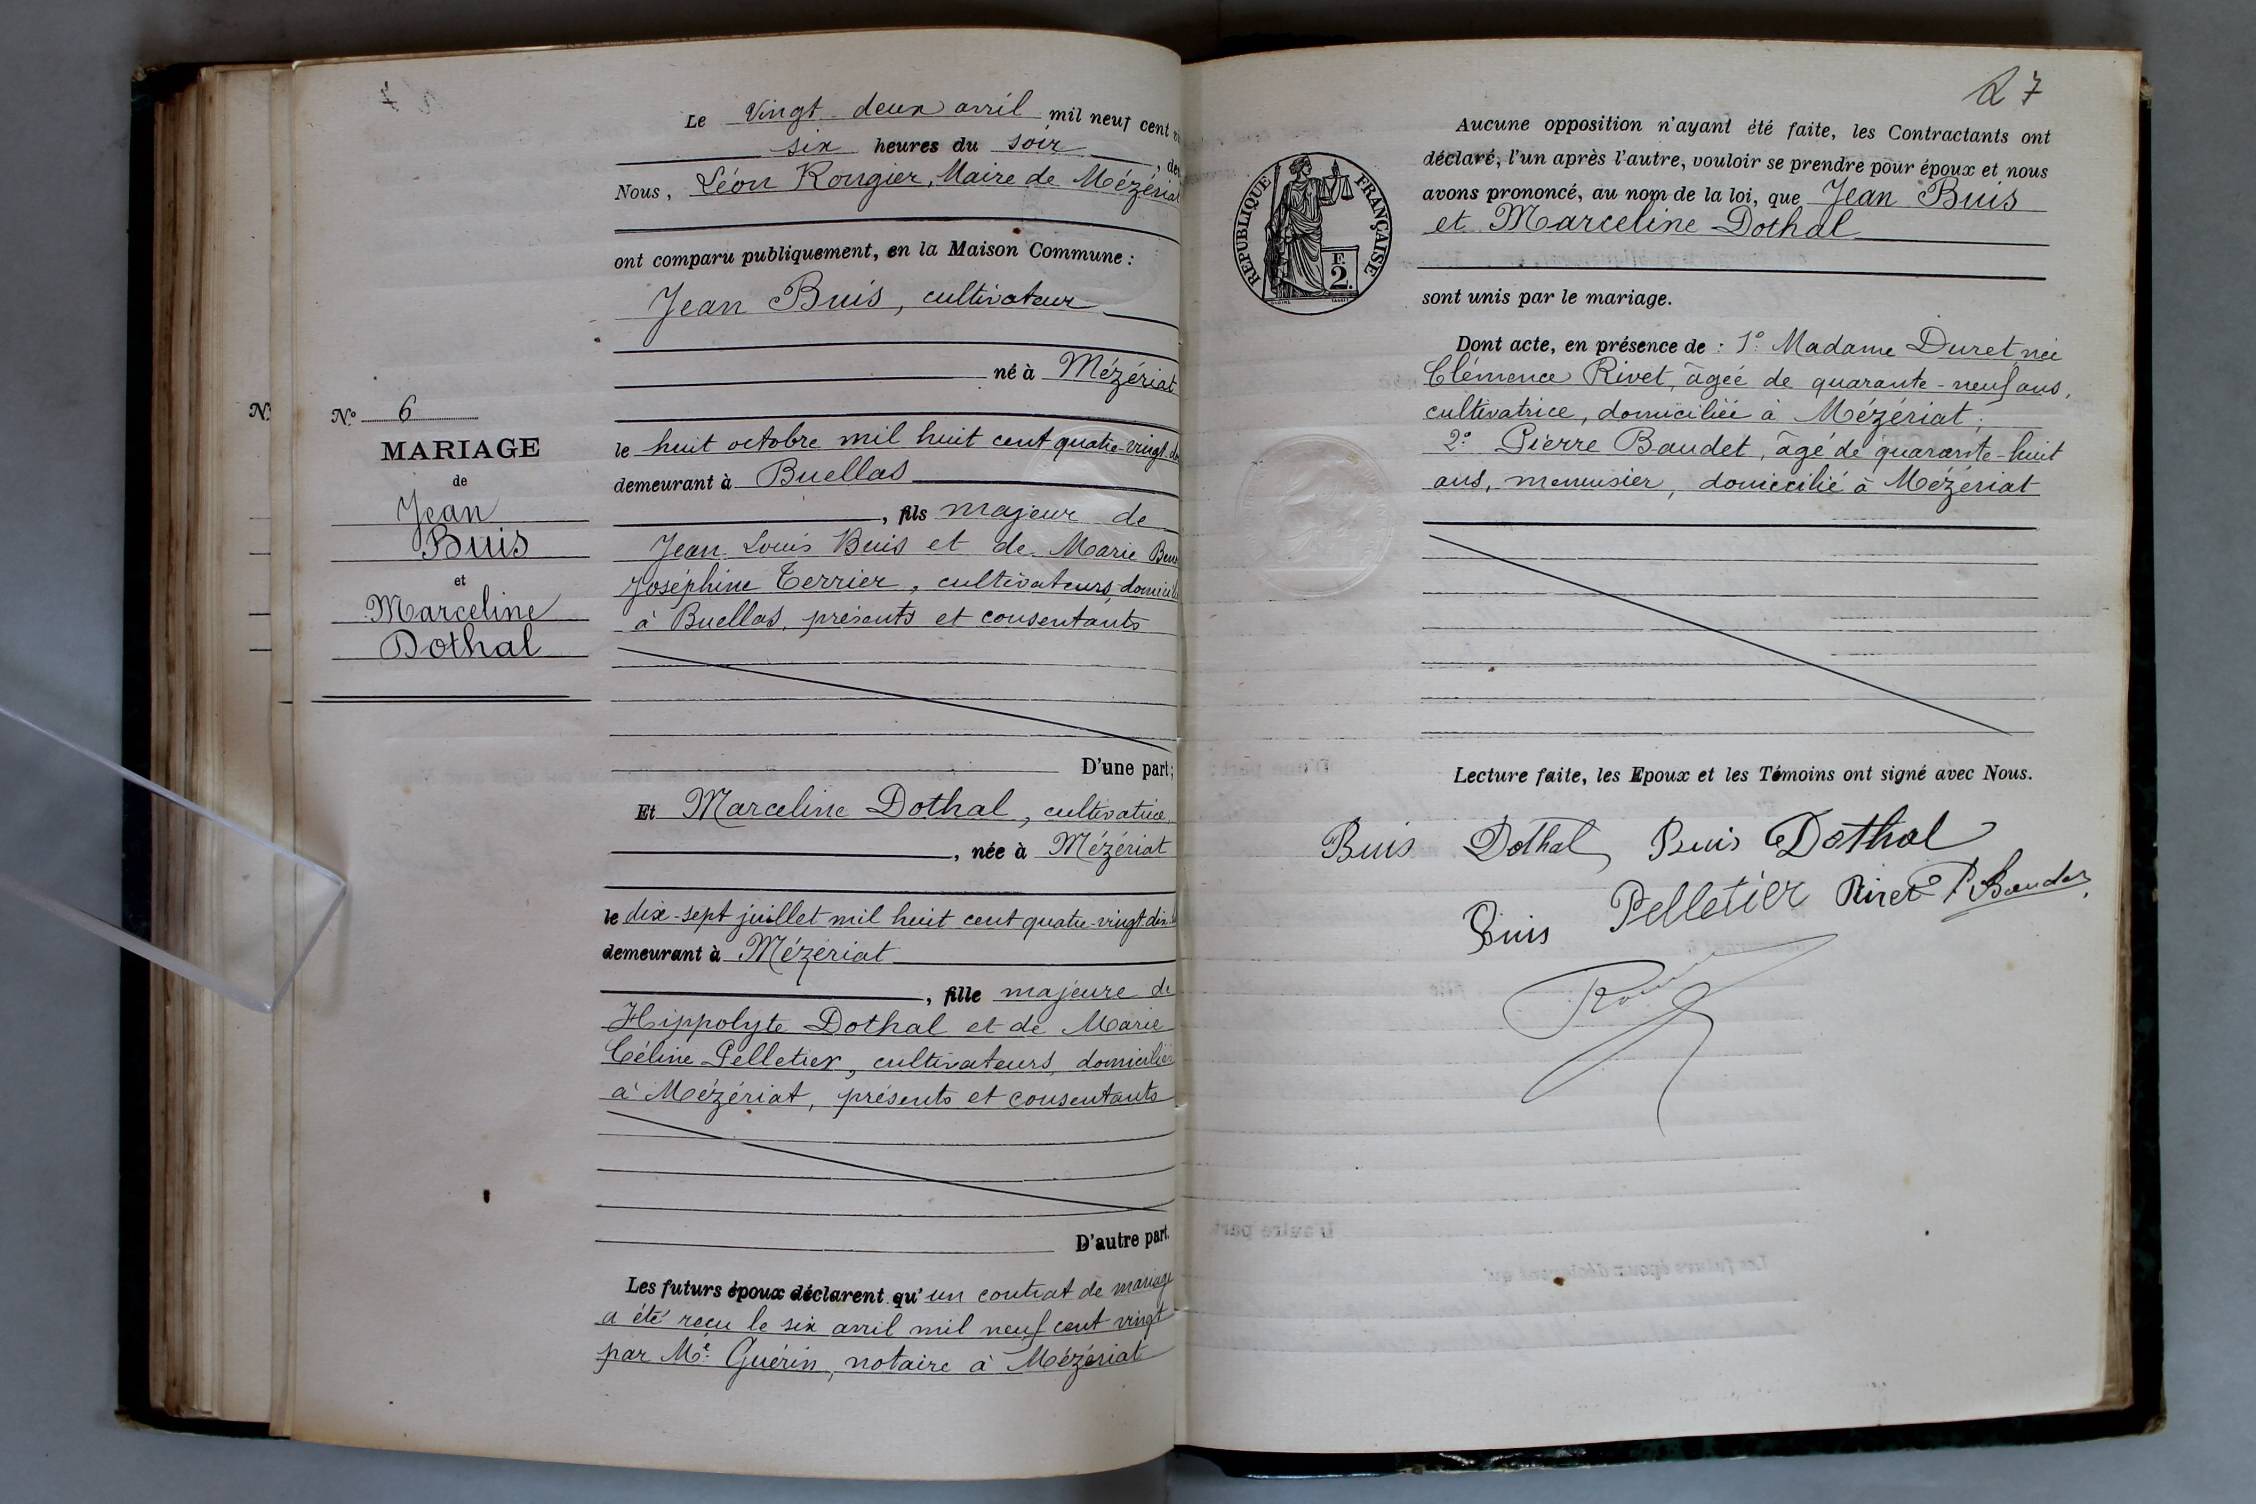 Le Vingt deux avril mil neuf cent
six heures du soir
Nous, Léon Rougier, Maire de Mézériat
ont comparu publiquement, en la Maison Commune :
Jean Buis, cultivateur
né à Mézériat
le huit octobre mil huit cent quatre-vingt
demeurant à Buellas
, fils majeur de
Jean Louis Buis et de Marie
Joséphine Terrier, cultivateurs,
à Buellas, présents et consentants
D'une part ;
Et Marceline Dothal, cultivatrice,
, née à Mézériat
le dix-sept juillet mil huit cent quatre-vingt
demeurant à Mézériat
, fille majeure de
Hippolyte Dothal et de Marie
Céline Pelletier, cultivateurs, domiciliés
à Mézériat, présents et consentants
D'autre part.
Les futurs époux déclarent qu'un contrat de mariage
a été reçu le six avril mil neuf cent vingt
par Me. Guérin, notaire à Mézériat
N.
N° 6
MARIAGE
de
Jean
Buis
et
Marceline
Dothal
27
RÉPUBLIQUE FRANÇAISE
F
2.
Aucune opposition n'ayant été faite, les Contractants ont
déclaré, l'un après l'autre, vouloir se prendre pour époux et nous
avons prononcé, au nom de la loi, que Jean Buis
et Marceline Dothal
sont unis par le mariage.
Dont acte, en présence de : 1° Madame Duret née
Clémence Rivet, âgée de quarante-neuf ans,
cultivatrice, domiciliée à Mézériat ;
2° Pierre Baudet, âgé de quarante-huit
ans, menuisier, domicilié à Mézériat
Lecture faite, les Epoux et les Témoins ont signé avec Nous.
Buis Dothal Buis Dothal
Buis Pelletier Rivet P Baudet